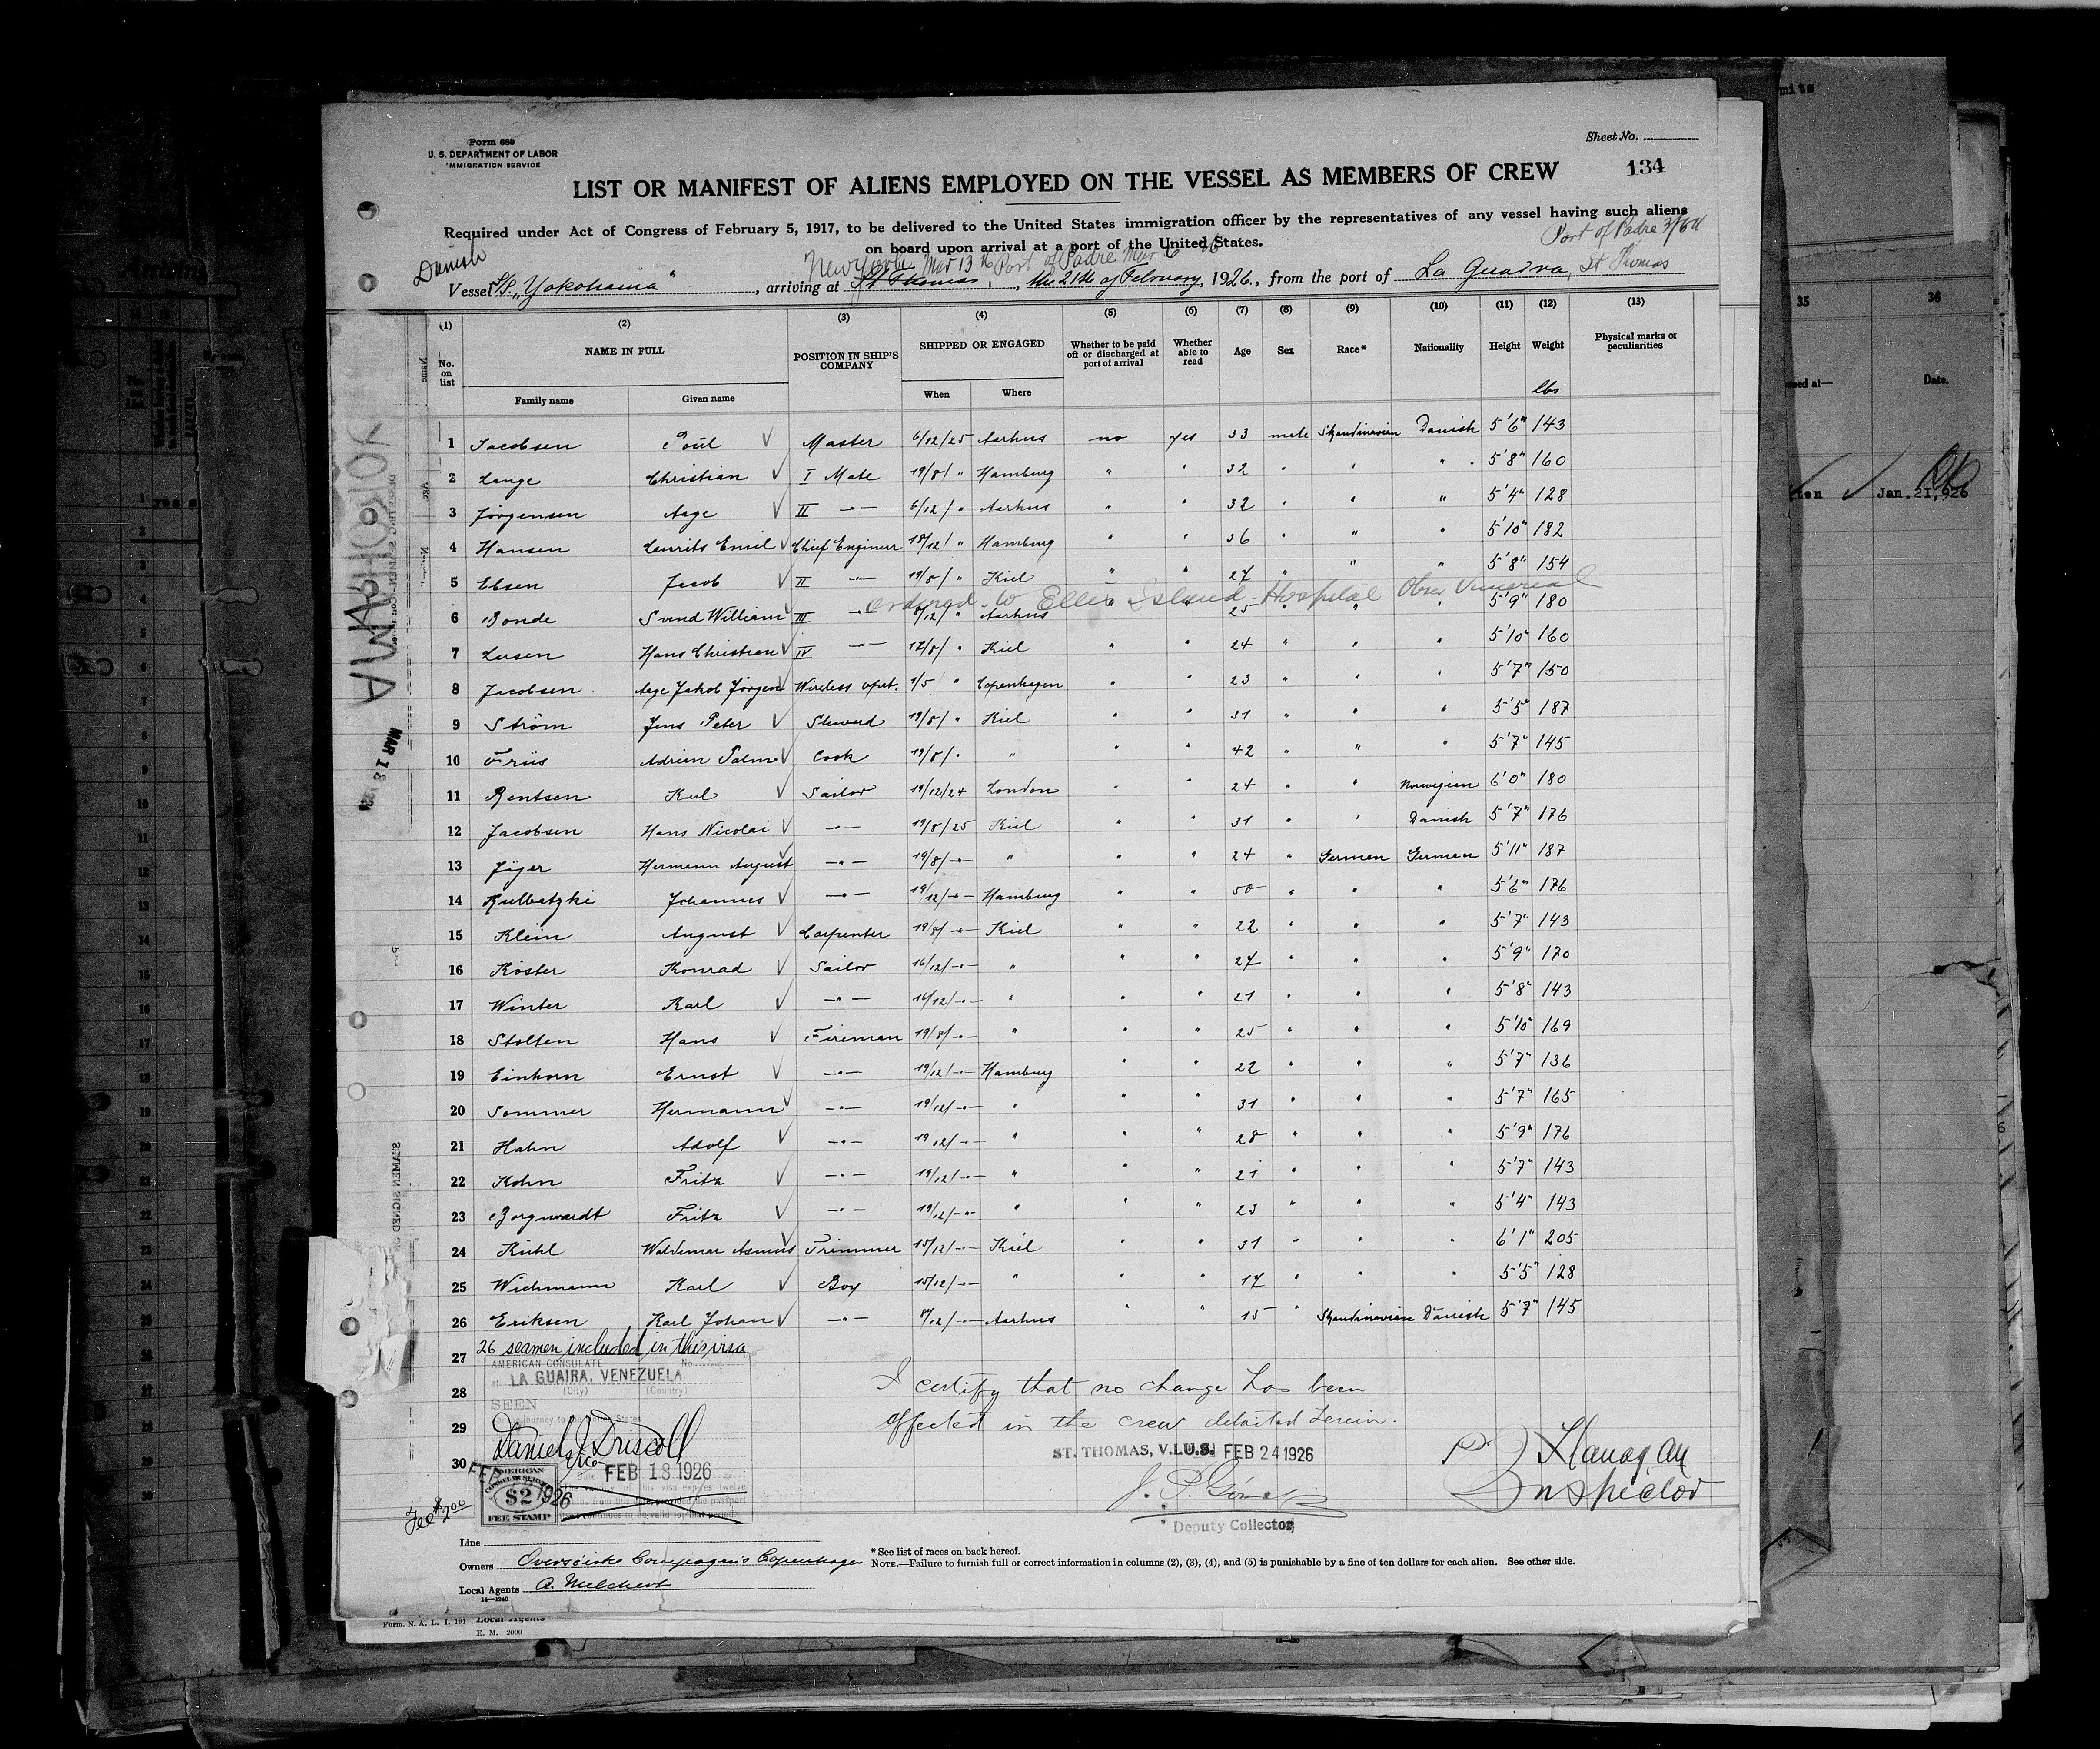 Form 680
U. S. DEPARTMENT OF LABOR
IMMIGRATION SERVICE
Sheet No.
134
LIST OR MANIFEST OF ALIENS EMPLOYED ON THE VESSEL AS MEMBERS OF CREW
Required under Act of Congress of February 5, 1917, to be delivered to the United States immigration officer by the representatives of any vessel having such aliens
on board upon arrival at a port of the United States.
Port of Padre 3/6
Danish
New York Mar 13 Port of Padre Mar 6
Vessel S/S „Yokohama", arriving at St Thomas, the 21th of February, 1926, from the port of La Guaira, St Thomas
(1) (2) (3) (4) (5) (6) (7) (8) (9) (10) (11) (12) (13)
No. on list NAME IN FULL POSITION IN SHIP'S COMPANY SHIPPED OR ENGAGED Whether to be paid off or discharged at port of arrival Whether able to read Age Sex Race* Nationality Height Weight Physical marks or peculiarities
Family name Given name When Where lbs
1 Jacobsen Poul Master 6/12/25 Aarhus no yes 33 male Skandinavian Danish 5'6" 143
2 Lange Christian I Mate 19/8/ " Hamburg " " 32 " " " 5'8" 160
3 Jørgensen Aage II -"- 6/12/ " Aarhus " " 32 " " " 5'4" 128
4 Hansen Laurits Emil Chief Engineer 18/12/ " Hamburg " " 36 " " " 5'10" 182
5 Ebsen Jacob II -"- 19/8/ " Kiel " " 27 " " " 5'8" 154
ordered to Ellis Island Hospital Obsv Venereal
6 Bonde Svend William III -"- 6/12/ " Aarhus " " 25 " " " 5'9" 180
7 Larsen Hans Christian IV -"- 12/8/ " Kiel " " 24 " " " 5'10" 160
8 Jacobsen Aage Jakob Jørgen Wireless opert. 1/5 " Copenhagen " " 23 " " " 5'7" 150
9 Strøm Jens Peter Steward 19/8/ " Kiel " " 31 " " " 5'5" 187
10 Friis Adrian Palm Cook 19/8/ " " " " 42 " " " 5'7" 145
11 Bentsen Karl Sailor 19/12/24 London " " 24 " " Norwegian 6'0" 180
12 Jacobsen Hans Nicolai -"- 19/8/25 Kiel " " 31 " " Danish 5'7" 176
13 Jäger Hermann August -"- 19/8/-"- " " " 24 " German German 5'11" 187
14 Kulbatzki Johannes -"- 19/12/-"- Hamburg " " 50 " " " 5'6" 176
15 Klein August Carpenter 19/8/-"- Kiel " " 22 " " " 5'7" 143
16 Köster Konrad Sailor 16/12/-"- " " " 27 " " " 5'9" 170
17 Winter Karl -"- 16/12/-"- " " " 21 " " " 5'8" 143
18 Stolten Hans Fireman 19/8/-"- " " " 25 " " " 5'10" 169
19 Einhorn Ernst -"- 19/12/-"- Hamburg " " 22 " " " 5'7" 136
20 Sommer Hermann -"- 19/12/-"- " " " 31 " " " 5'7" 165
21 Hahn Adolf -"- 19/12/-"- " " " 28 " " " 5'9" 176
22 Kohn Fritz -"- 19/12/-"- " " " 21 " " " 5'7" 143
23 Borgwardt Fritz -"- 19/12/-"- " " " 23 " " " 5'4" 143
24 Kühl Waldemar Asmus Trimmer 15/12/-"- Kiel " " 31 " " " 6'1" 205
25 Wichmann Karl Boy 15/12/-"- " " " 17 " " " 5'5" 128
26 Eriksen Karl Johan -"- 8/12/-"- Aarhus " " 15 " Skandinavian Danish 5'7" 145
27 26 seamen included in this visa
AMERICAN CONSULATE No.
at LA GUAIRA, VENEZUELA
(City) (Country)
28 I certify that no change has been
SEEN
29 effected in the crew detailed herein.
journey to the United States
Daniel J. Driscoll
ST. THOMAS, V.I. U.S. FEB 24 1926
30
Date FEB 18 1926
The validity of this visa expires twelve
months from this date, provided the passport
itself continues to be valid for that period.
AMERICAN
CONSULAR SERVICE
$2
FEE STAMP
FEB 1926
Fee $2.00
Flanagan
Inspector
Deputy Collector
Line
Owners Oversøiske Compagnie Copenhagen
Local Agents A. Melchert
14—1240
* See list of races on back hereof.
NOTE.—Failure to furnish full or correct information in columns (2), (3), (4), and (5) is punishable by a fine of ten dollars for each alien. See other side.
Form. N. A. L. I. 191 Local Agents
E. M. 2000
YOKOHAMA
MAR 13
SEAMEN SIGNED
35 36
Date.
Jan. 21, 926